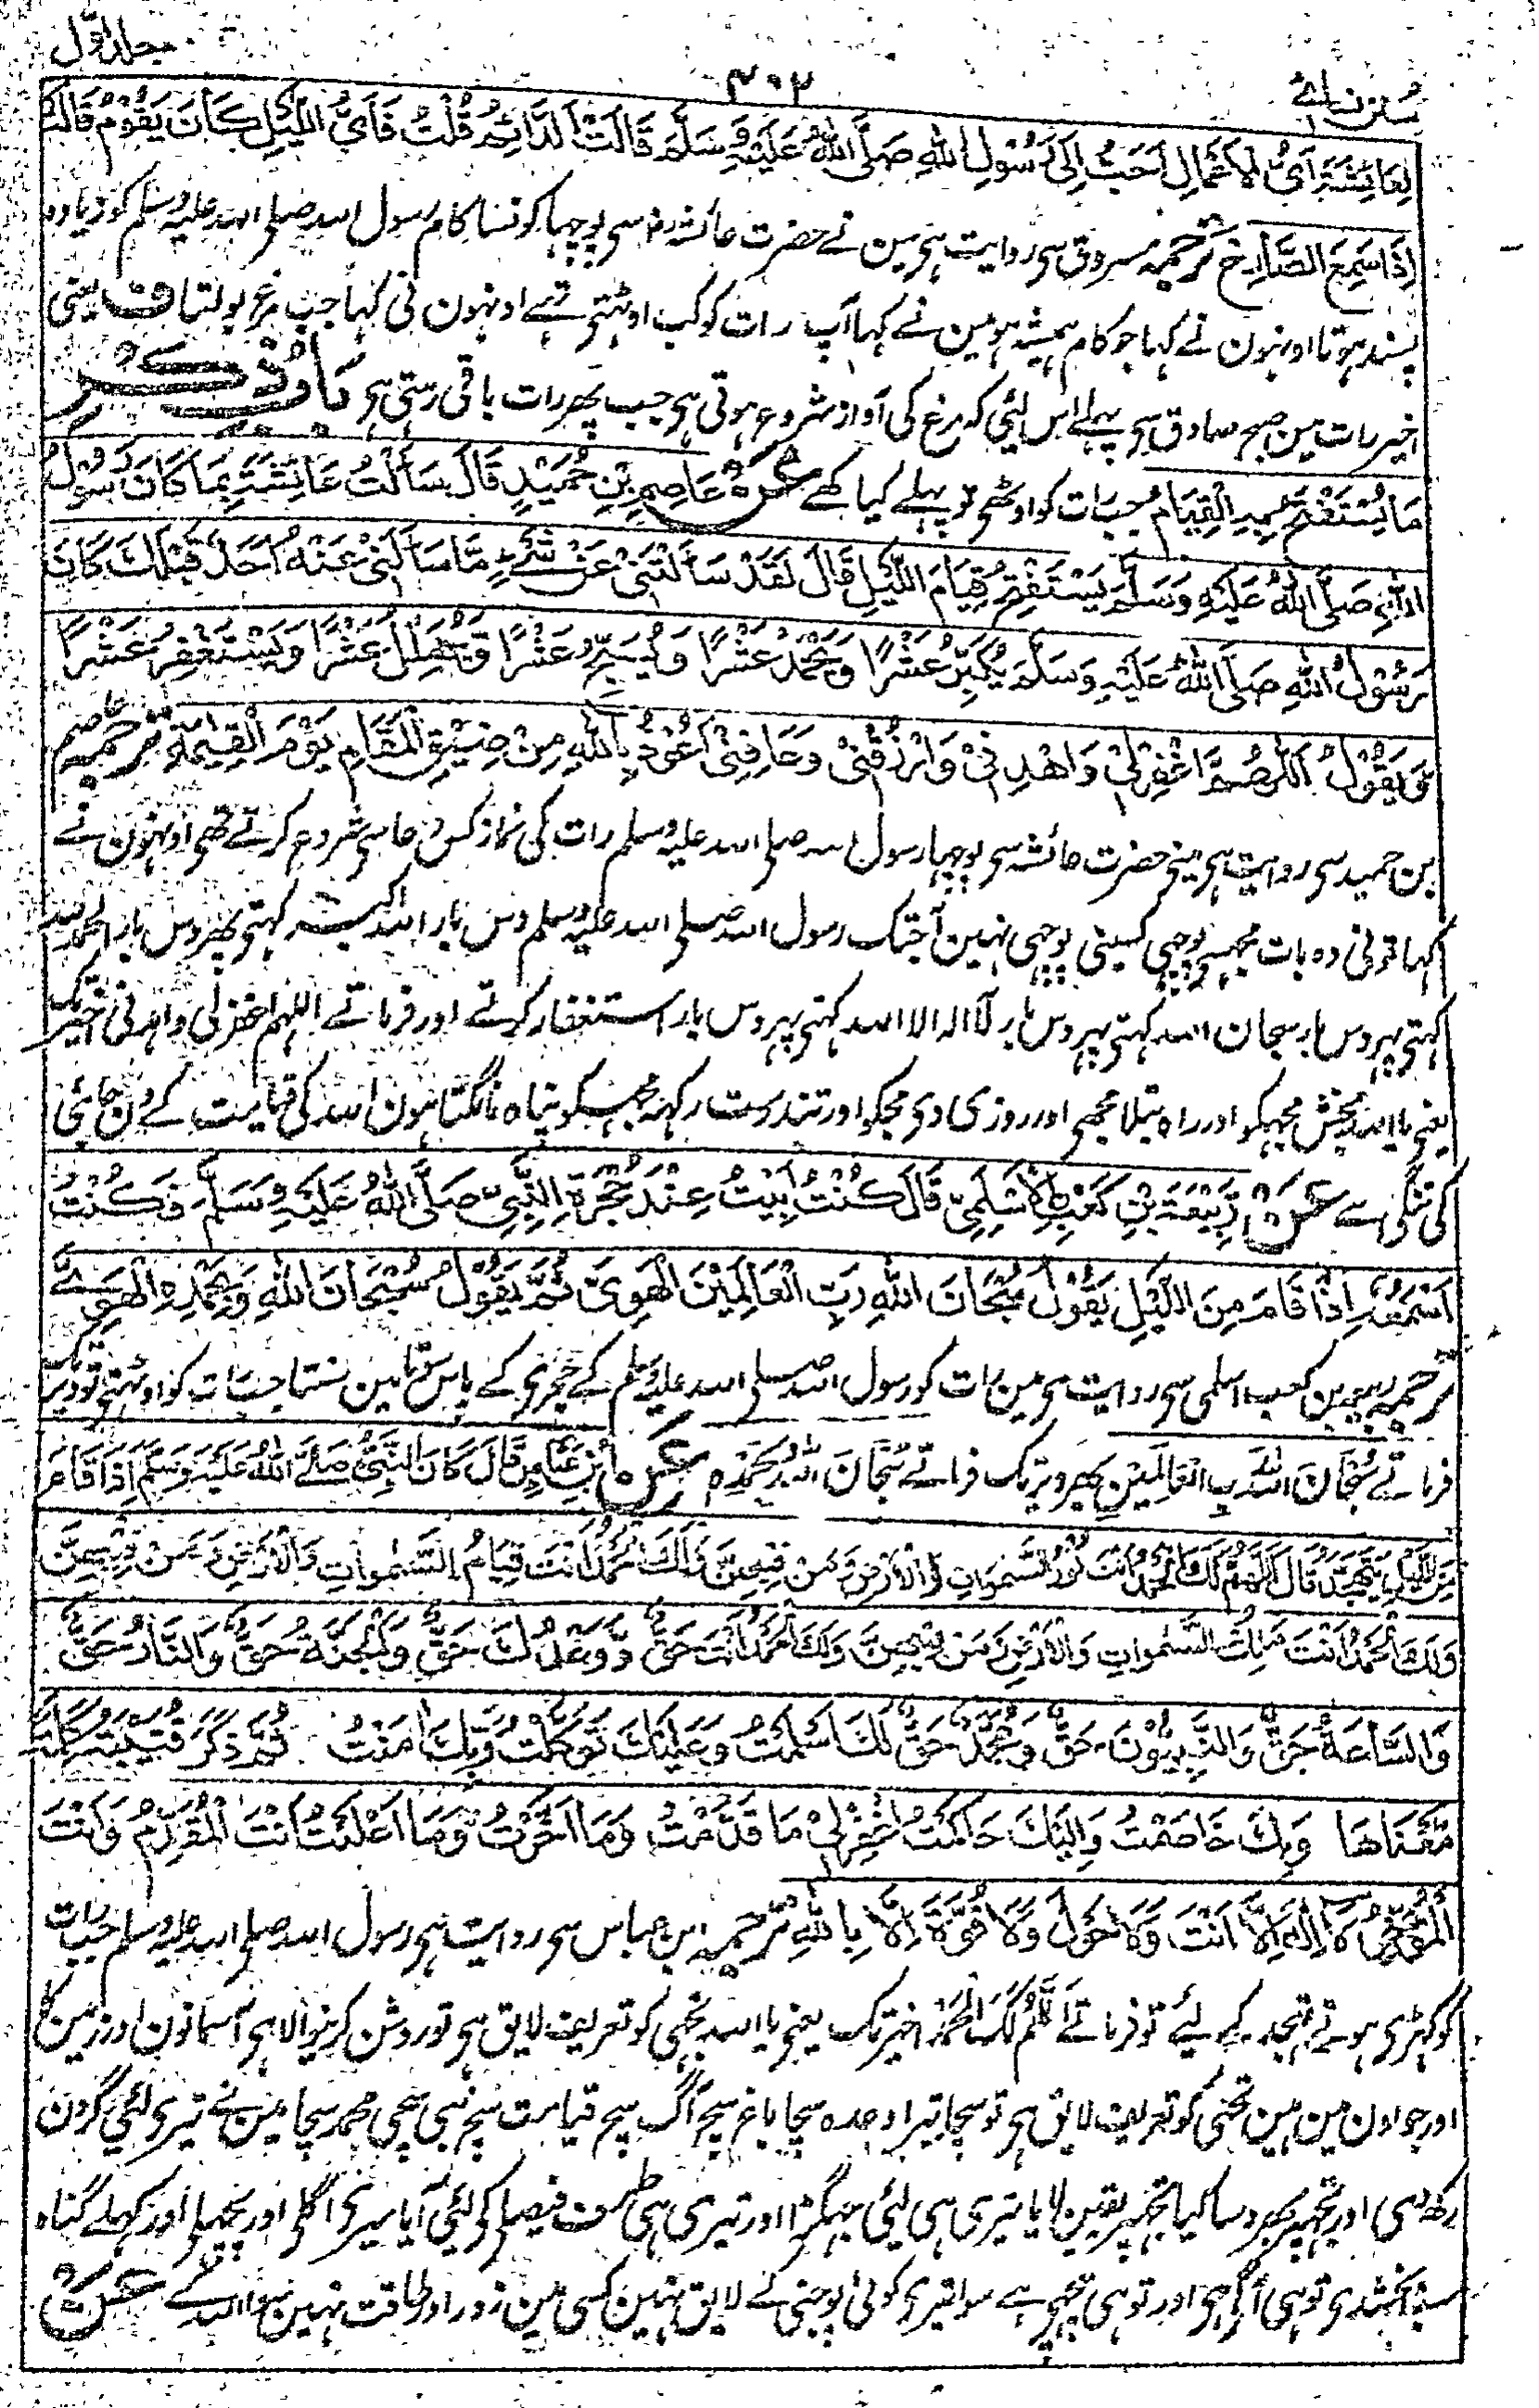 سنن نسائے ۴۰۲ جلد اول
لِعَائِشَةَ اَيُّ الْاَعْمَالِ اَحَبُّ اِلَى رَسُوْلِ اللهِ صَلَّى اللهُ عَلَيْهِ وَسَلَّمَ قَالَتْ الدَّائِمُ قُلْتُ فَاَيُّ اللَّيْلِ كَانَ يَقُوْمُ قَالَتْ
اِذَا سَمِعَ الصَّارِخَ ترجمہ مسروق سے روایت ہی مین نے حضرت عائشہ رض سی پوچہا کونسا کام رسول اللہ صلی اللہ علیہ وسلم کو زیادہ
پسند ہوتا اونہون نے کہا جو کام ہمیشہ ہو مین نے کہا آپ رات کو کب اوٹہتی تہے اونہون نی کہا جب مرغ بولتا ف یعنی
اخیر رات مین صبح صادق سی پہلے اس لیئی کہ مرغ کی آواز شروع ہوتی ہی جب پہر رات باقی رہتی ہی بَابُ ذِكْرِ
مَا يُسْتَفْتَحُ بِهِ الْقِيَامُ جب رات کو اوٹہی تو پہلے کیا کہے عَنْ عَاصِمِ بْنِ حُمَيْدٍ قَالَ سَاَلْتُ عَائِشَةَ بِمَا كَانَ رَسُوْلُ
اللهِ صَلَّى اللهُ عَلَيْهِ وَسَلَّمَ يَسْتَفْتِحُ قِيَامَ اللَّيْلِ قَالَ لَقَدْ سَاَلْتَنِيْ عَنْ شَيْءٍ مَّا سَاَلَنِيْ عَنْهُ اَحَدٌ قَبْلَكَ كَانَ
رَسُوْلُ اللهِ صَلَّى اللهُ عَلَيْهِ وَسَلَّمَ يُكَبِّرُ عَشْرًا وَّيَحْمَدُ عَشْرًا وَّيُسَبِّحُ عَشْرًا وَّيُهَلِّلُ عَشْرًا وَّيَسْتَغْفِرُ عَشْرًا
وَيَقُوْلُ اَللّٰهُمَّ اغْفِرْلِيْ وَاهْدِنِيْ وَارْزُقْنِيْ وَعَافِنِيْ اَعُوْذُ بِاللهِ مِنْ ضِيْقِ الْمَقَامِ يَوْمَ الْقِيٰمَةِ ترجمہ عاصم
بن حمید سی روایت ہی مینی حضرت عائشہ سی پوچہا رسول اللہ صلی اللہ علیہ وسلم رات کی نماز کس دعا سی شروع کرتے تھی اونہون نے
کہا تونی وہ بات مجہسی پوچہی کسینی پوچہی نہین آجتک رسول اللہ صلی اللہ علیہ وسلم دس بار اللہ اکبر کہتی پہر دس بار الحمد للہ
کہتی پہر دس بار سبحان اللہ کہتی پہر دس بار لا الہ الا اللہ کہتی پہر دس بار استغفار کرتے اور فرماتے اللہم اغفرلی واہدنی اخیر تک
یعنی یا اللہ بخش مجہکو اور راہ بتلا مجھی اور روزی دی مجکو اور تندرست رکہہ مجہکو پناہ مانگتا ہون اللہ کی قیامت کے دن جائی
کی تنگی سے عَنْ رَبِيْعَةَ بْنِ كَعْبِ الْاَسْلَمِيِّ قَالَ كُنْتُ اَبِيْتُ عِنْدَ حُجْرَةِ النَّبِيِّ صَلَّى اللهُ عَلَيْهِ وَسَلَّمَ فَكُنْتُ
اَسْمَعُهُ اِذَا قَامَ مِنَ اللَّيْلِ يَقُوْلُ سُبْحَانَ اللهِ رَبِّ الْعَالَمِيْنَ الْهَوِيَّ ثُمَّ يَقُوْلُ سُبْحَانَ اللهِ وَبِحَمْدِهِ الْهَوِيَّ
ترجمہ ربیعہ بن کعب اسلمی سی روایت ہی مین رات کو رسول اللہ صلی اللہ علیہ وسلم کے حجری کے پاس سوتا مین سنتا جب رات کو اوٹہتے تو دیر تک
فرماتے سُبْحَانَ اللهِ رَبِّ الْعَالَمِيْنَ پہر دیر تک فرماتے سُبْحَانَ اللهِ وَبِحَمْدِهِ عَنْ ابْنِ عَبَّاسٍ قَالَ كَانَ النَّبِيُّ صَلَّى اللهُ عَلَيْهِ وَسَلَّمَ اِذَا قَامَ
مِنَ اللَّيْلِ يَتَهَجَّدُ قَالَ اَللّٰهُمَّ لَكَ الْحَمْدُ اَنْتَ نُوْرُ السَّمٰوَاتِ وَالْاَرْضِ وَمَنْ فِيْهِنَّ وَلَكَ الْحَمْدُ اَنْتَ قِيَامُ السَّمٰوَاتِ وَالْاَرْضِ وَمَنْ فِيْهِنَّ
وَلَكَ الْحَمْدُ اَنْتَ مَلِكُ السَّمٰوَاتِ وَالْاَرْضِ وَمَنْ فِيْهِنَّ وَلَكَ الْحَمْدُ اَنْتَ حَقٌّ وَّوَعْدُكَ حَقٌّ وَالْجَنَّةُ حَقٌّ وَالنَّارُ حَقٌّ
وَالسَّاعَةُ حَقٌّ وَالنَّبِيُّوْنَ حَقٌّ وَمُحَمَّدٌ حَقٌّ لَكَ اَسْلَمْتُ وَعَلَيْكَ تَوَكَّلْتُ وَبِكَ اٰمَنْتُ ثُمَّ ذَكَرَ قُتَيْبَةُ كَلِمَةً
مَّعْنَاهَا وَبِكَ خَاصَمْتُ وَاِلَيْكَ حَاكَمْتُ اغْفِرْلِيْ مَا قَدَّمْتُ وَمَا اَخَّرْتُ وَمَا اَعْلَنْتُ اَنْتَ الْمُقَدِّمُ وَاَنْتَ
الْمُؤَخِّرُ لَا اِلٰهَ اِلَّا اَنْتَ وَلَا حَوْلَ وَلَا قُوَّةَ اِلَّا بِاللهِ ترجمہ ابن عباس سی روایت ہی رسول اللہ صلی اللہ علیہ وسلم جب رات
کو کہڑی ہوتے تہجد کے لیئے تو فرماتے اَللّٰهُمَّ لَكَ الْحَمْدُ اخیر تک یعنی یا اللہ تجہی کو تعریف لایق ہی تو روشن کرنیوالا ہی آسمانون اور زمین کا
اور جو اون مین ہین تجہی کو تعریف لایق ہی تو سچا تیرا وعدہ سچا باغ سچ آگ سچ قیامت سچ نبی سچی محمد سچا مین نے تیری لئی گردن
رکھ دی اور تجہپر بہروسا کیا تجہپر یقین لایا تیری ہی لئی جہگڑا اور تیری ہی طرف فیصلی کو لئی آیا میری اگلی اور پچہلی اور کہلے گناہ
سب بخشدی تو ہی آگی ہی اور تو ہی پیچہی ہے سوا تیری کوئی پوجنے کے لایق نہین کسی مین زور اور طاقت نہین سوا اللہ کے عَنْ